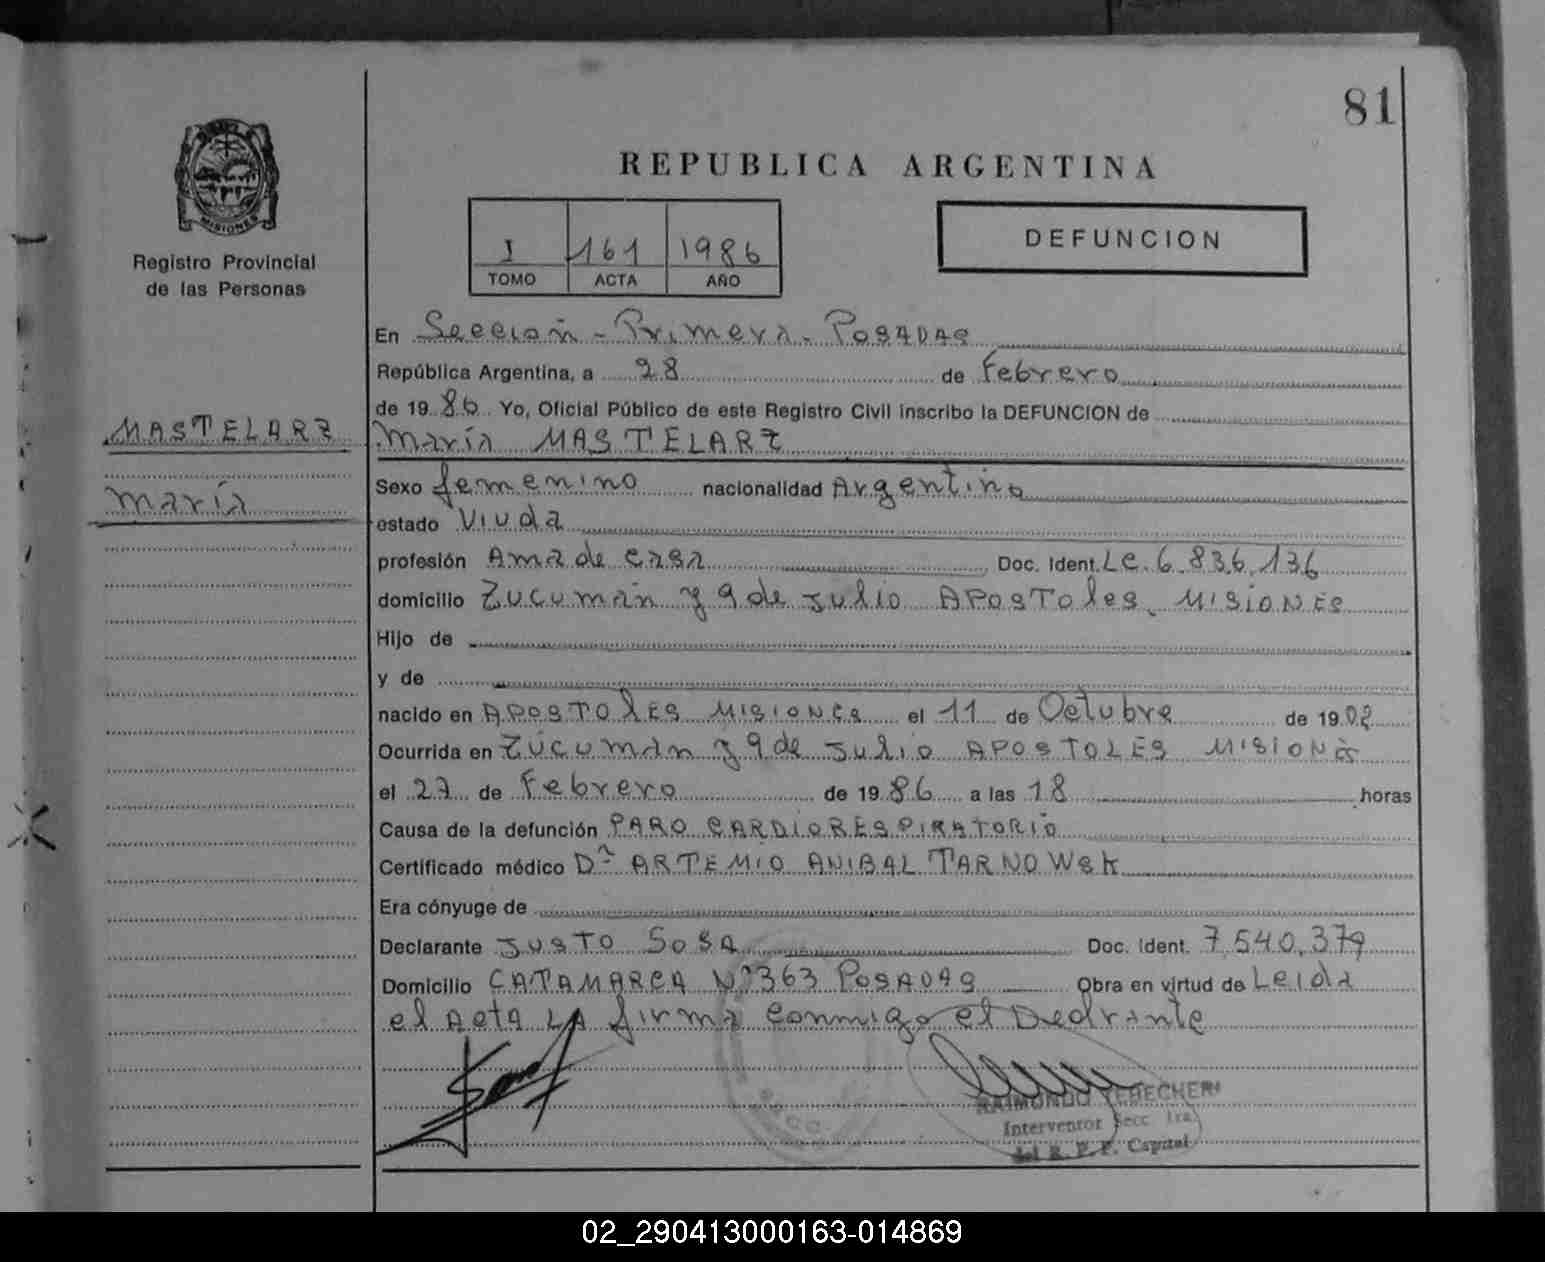 81
REPUBLICA ARGENTINA
MISIONES
Registro Provincial
de las Personas
I 161 1986
TOMO ACTA AÑO
DEFUNCION
En Seccion - Primera - POSADAS
República Argentina, a 28 de Febrero
de 19 86 Yo, Oficial Público de este Registro Civil inscribo la DEFUNCION de
MASTELARZ
María MASTELARZ
María
Sexo femenino nacionalidad Argentina
estado Viuda
profesión Ama de casa Doc. Ident. LC. 6.836.136
domicilio Tucumán y 9 de Julio APOSTOles. MISIONES
Hijo de
y de
nacido en APOSTOlES MISIONES el 11 de Octubre de 19 02
Ocurrida en Tucumán y 9 de Julio APOSTOLES MISIONES
el 27 de Febrero de 19 86 a las 18 horas
Causa de la defunción PARO CARDIORESPIRATORIO
Certificado médico Dr ARTEMIO ANIBAL TARNOWSK
Era cónyuge de
Declarante JUSTO SOSA Doc. Ident. 7.540.379
Domicilio CATAMARCA Nº363 POSADAS Obra en virtud de Leida
el Acta LA firma conmigo el Declrante
RAIMUNDO
Interventor Secc 1ra
del R. P. P. Capital
SECC.
02_290413000163-014869